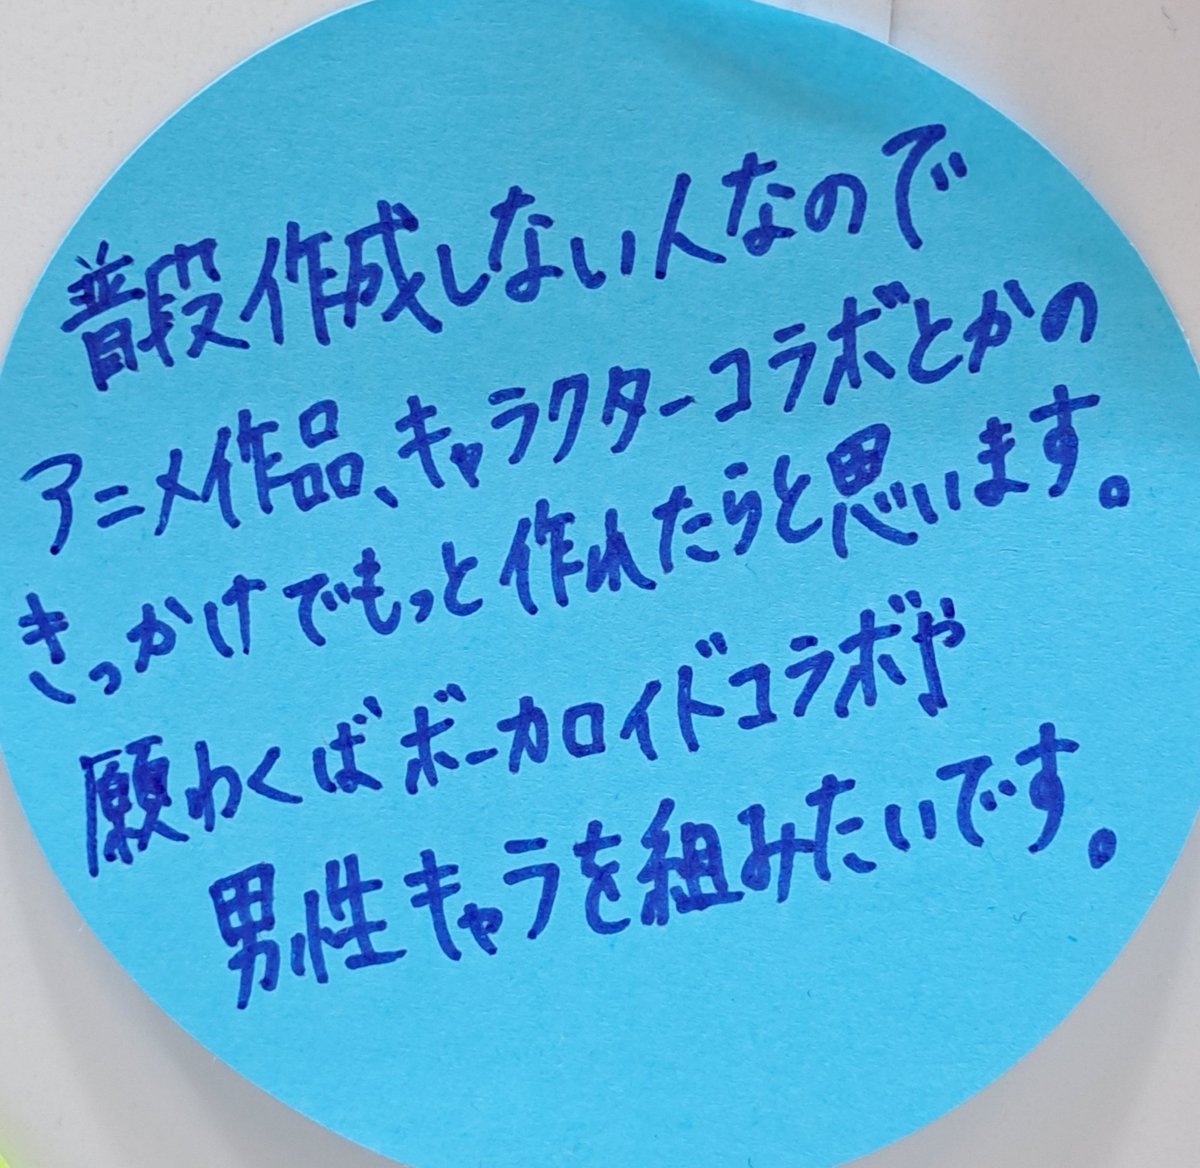 普段作成しない人なので
アニメ作品、キャラクターコラボとかの
きっかけでもっと作れたらと思います。
願わくばボーカロイドコラボや
男性キャラを組みたいです。